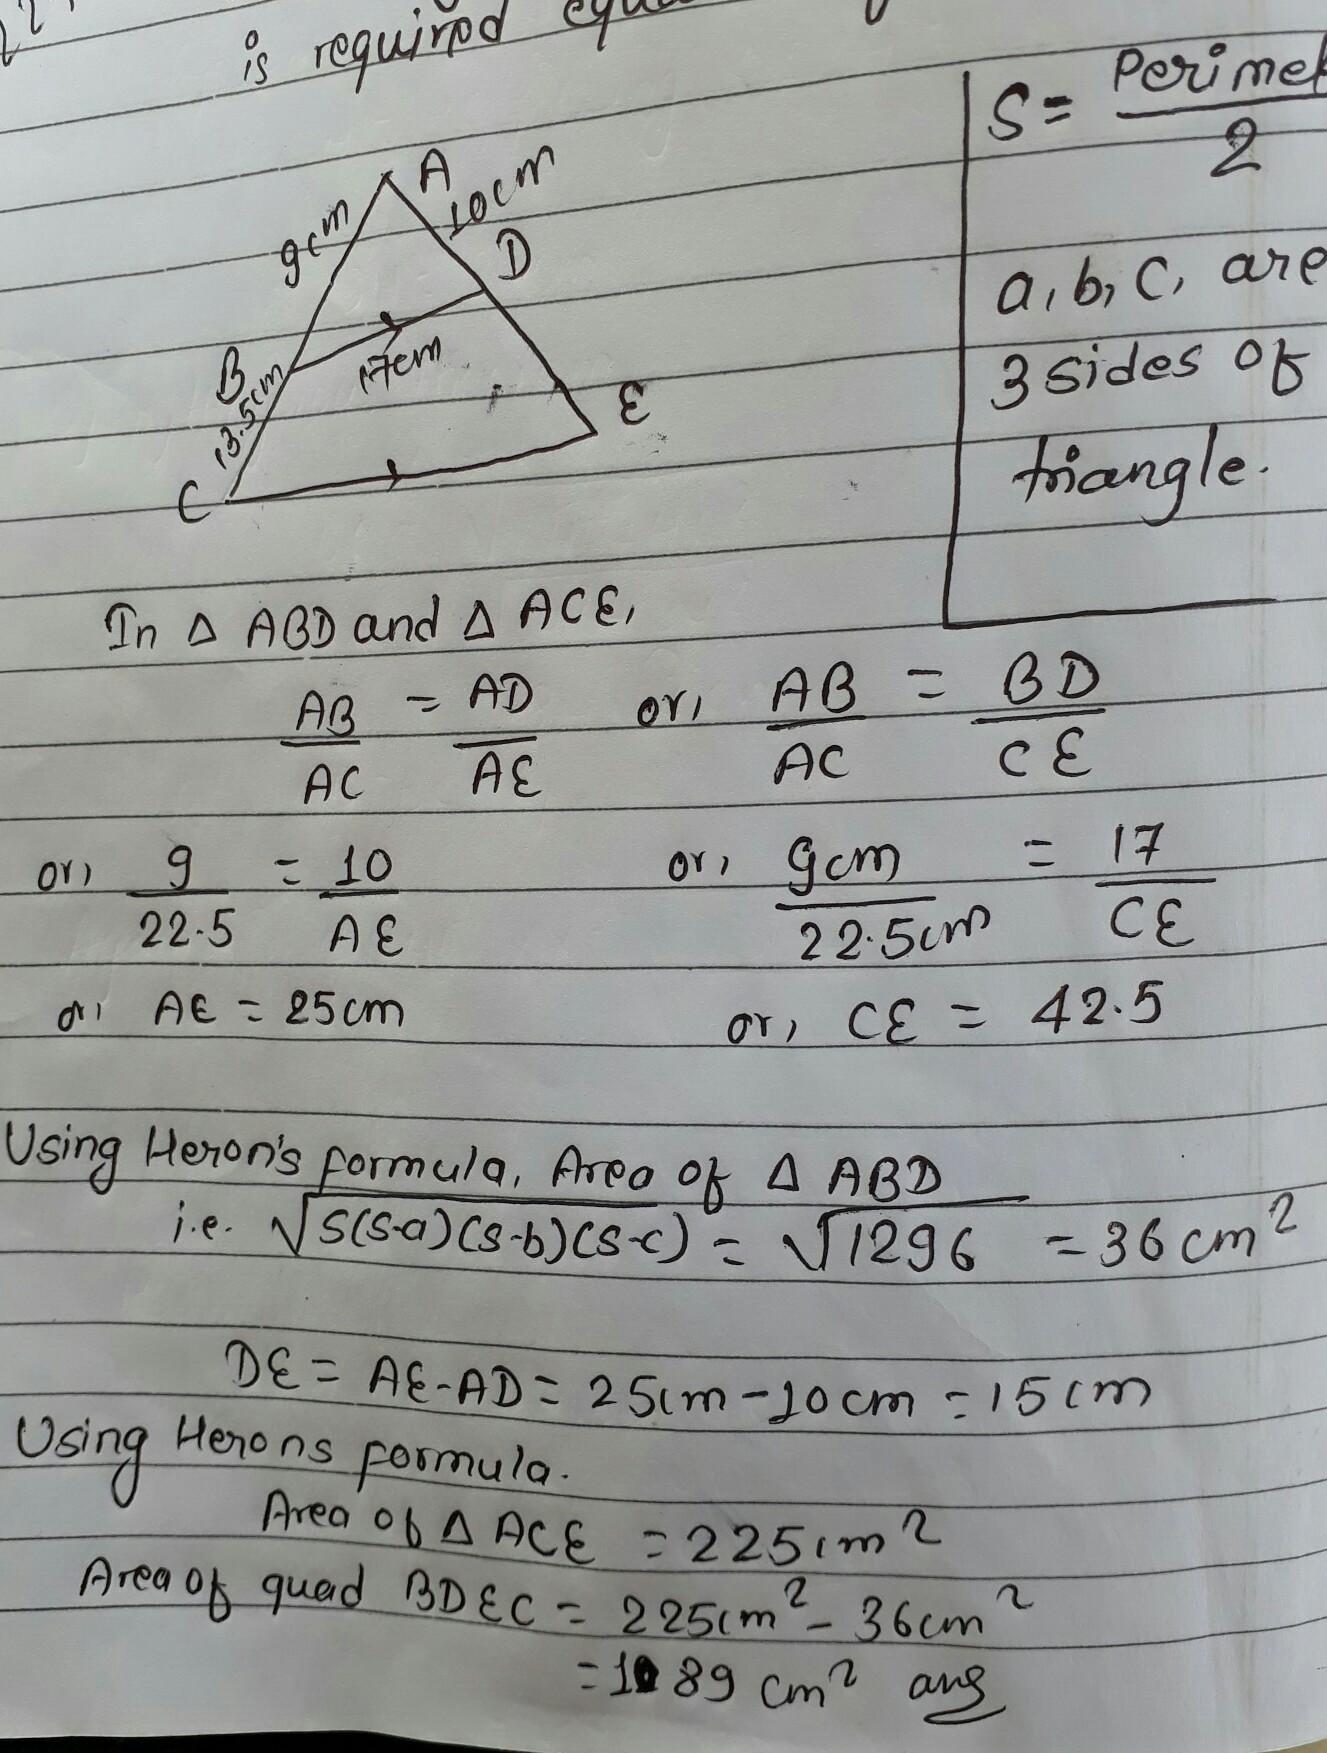 is required
S = Perimet
2
a, b, C, are
3 sides of
triangle.
A
9cm
10cm
D
B
17cm
13.5cm
E
C
In Δ ABD and Δ ACE,
AB/AC = AD/AE or, AB/AC = BD/CE
or, 9/22.5 = 10/AE or, 9cm/22.5cm = 17/CE
or, AE = 25cm or, CE = 42.5
Using Heron's formula, Area of Δ ABD
i.e. √S(S-a)(S-b)(S-c) = √1296 = 36 cm²
DE = AE-AD = 25cm - 10cm = 15cm
Using Herons formula.
Area of Δ ACE = 225cm²
Area of quad BDEC = 225cm² - 36cm²
= 189 cm² ans